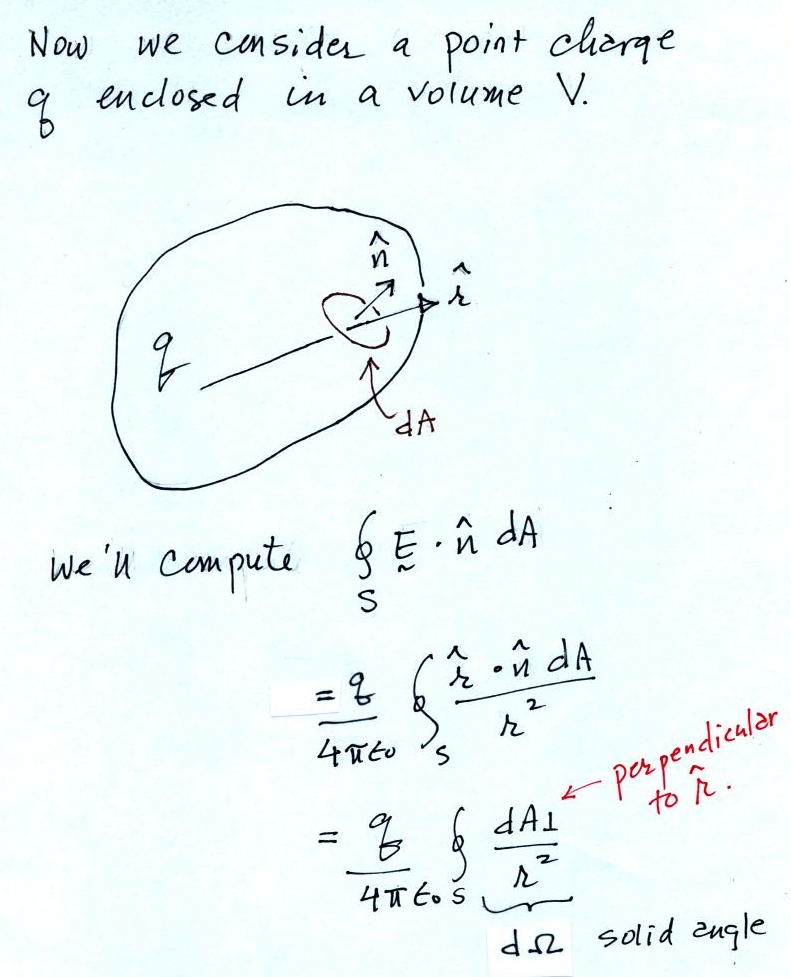 Now we consider a point charge
q enclosed in a volume V.
n̂
r̂
q
dA
We'll compute ∮_S Ḛ · n̂ dA
= q/4πε₀ ∮_S r̂ · n̂ dA / r²
perpendicular
to r̂.
= q/4πε₀ ∮_S dA⊥ / r²
dΩ solid angle